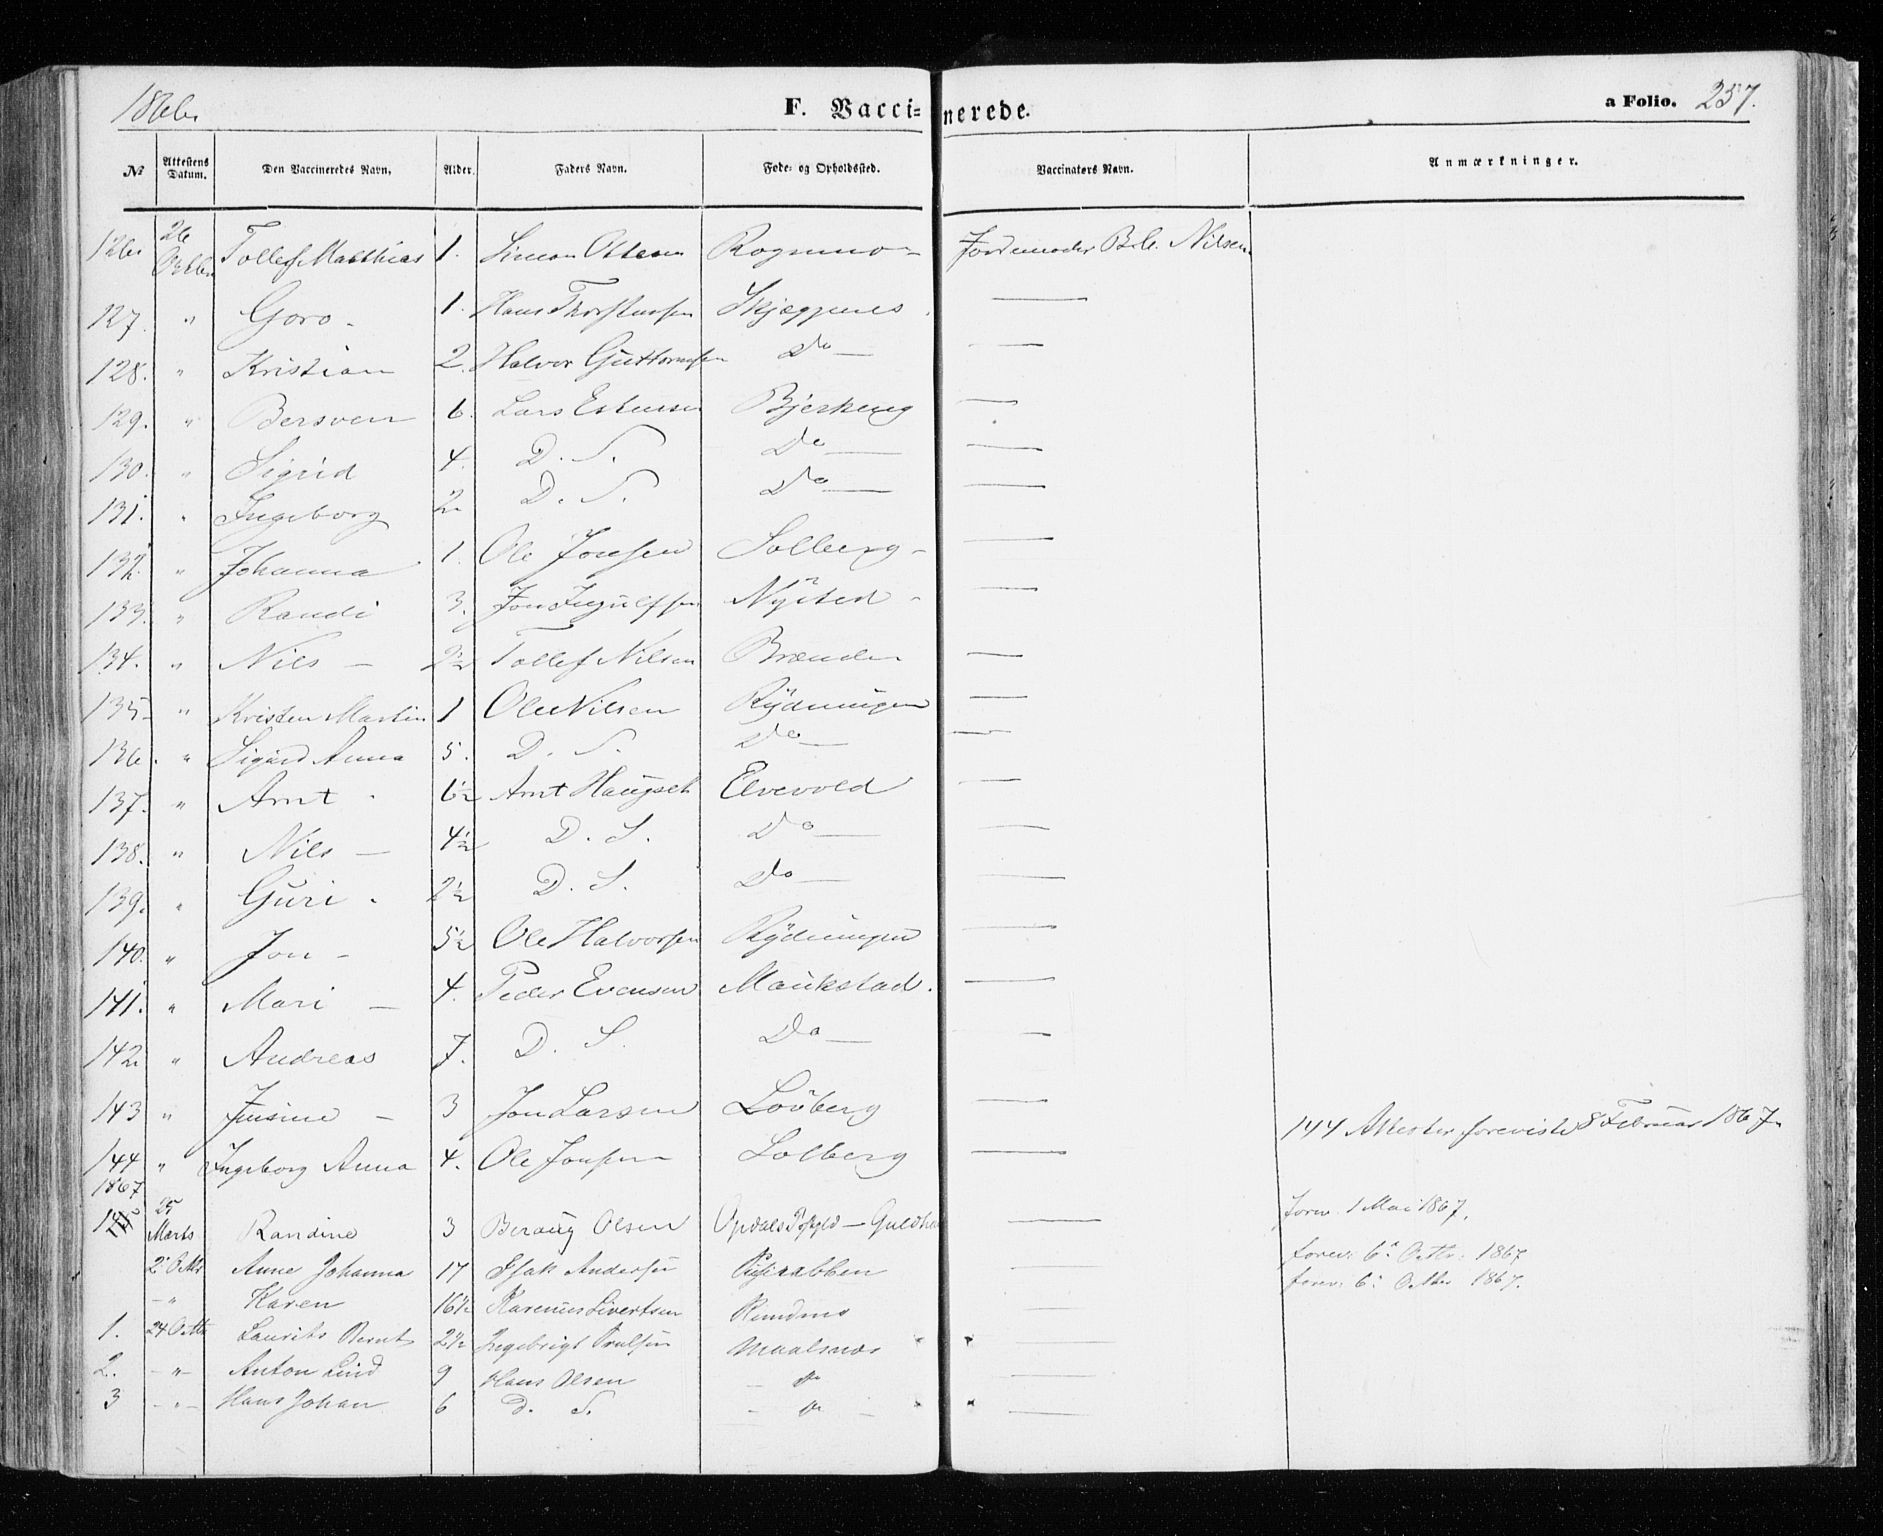 1866. F. Vaccinerede. a Folio. 257.
№ Attestens Datum. Den Vaccineredes Navn, Alder. Faders Navn. Føde- og Opholdssted. Vaccinatørs Navn. Anmærkninger.
126. 26 Octbr Tollef Matthias 1. Simon Ottesen Rognmo - Jordemoder B. Nilsen
127. " Goro - 1. Hans Thorstensen Skjæggenes
128. " Kristian 2. Halvor Guttormsen Do
129. " Bersven 6. Lars Estensen Bjerkeng
130. " Sigrid 4. D. S. Do
131. " Ingeborg 2. D. S. Do
132. " Johanna 1. Ole Jonsen Solberg -
133. " Randi 3. Jon Ingulfsen Nysted -
134. " Nils - 2½ Tollef Nilsen Brænden
135 - " Kristen Martin 1 Ole Nilsen Rydningen
136. " Sigrid Anna 5. D. S. Do
137. " Arnt - 6½ Arnt Haugseth Elvevold
138. " Nils - 4½ D. S. Do
139. " Guri - 2½ D. S. Do
140. " Jon - 5½ Ole Halvorsen Rydningen
141. " Mari - 4. Peder Evensen Maukstad.
142. " Andreas 7. D. S. Do
143 " Jensine - 3 Jon Larsen Løvberg
144 " Ingeborg Anna 4. Ole Jonsen Solberg 144 Attester foreviste 8 Februar 1867.
1867
145 25 Marts Randine 3 Beraug Olsen Opdals Pgjld - forev. 1 Mai 1867.
2 Octbr Anne Johanna 17 Isak Andersen forev: 6 Octbr: 1867
- " Karen 16½ Sivertsen forev: 6 Octbr 1867.
1. 24 Octbr Laurits Bernt 2½ Ingebrigt Maalsnæs
2. - " - Anton Lind 9 Hans Olsen - " -
3 - " - Hans Johan 6 D. S. - " -